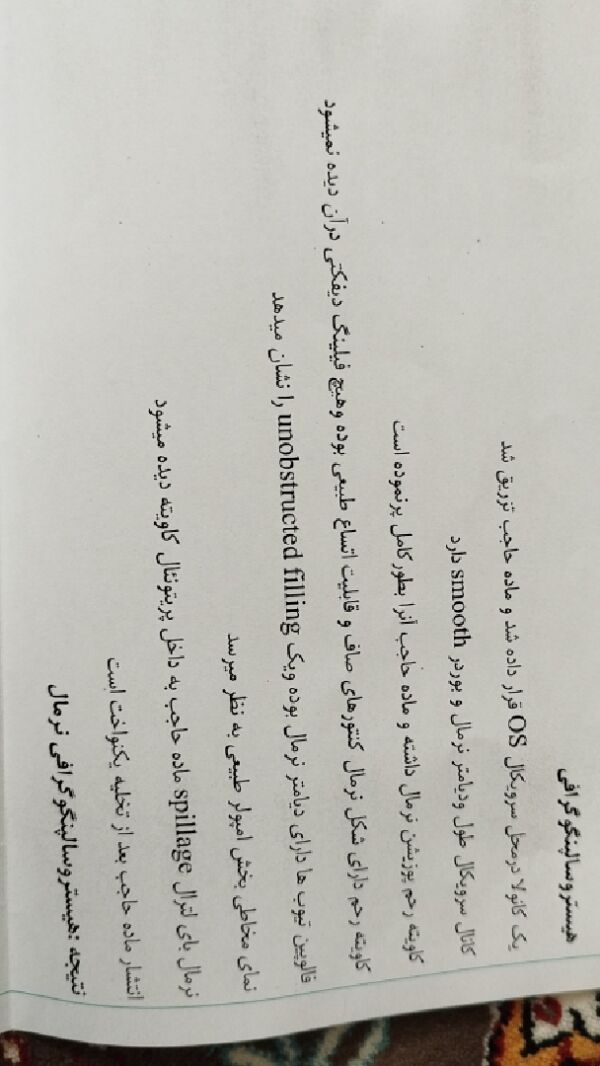 هیستروسالپنگوگرافی
یک کانولا درمحل سرویکال OS قرار داده شد و ماده حاجب تزریق شد
کانال سرویکال طول ودیامتر نرمال و بوردر smooth دارد
کاویته رحم پوزیشن نرمال داشته و ماده حاجب آنرا بطور کامل پر نموده است
کاویته رحم دارای شکل نرمال کنتورهای صاف و قابلیت اتساع طبیعی بوده وهیچ فیلینگ دیفکتی درآن دیده نمیشود
فالوپین تیوب ها دارای دیامتر نرمال بوده ویک unobstructed filling را نشان میدهد
نمای مخاطی بخش امپولر طبیعی به نظر میرسد
نرمال بای لترال spillage ماده حاجب به داخل پریتونئال کاویته دیده میشود
انتشار ماده حاجب بعد از تخلیه یکنواخت است
نتیجه :هیستروسالپنگوگرافی نرمال